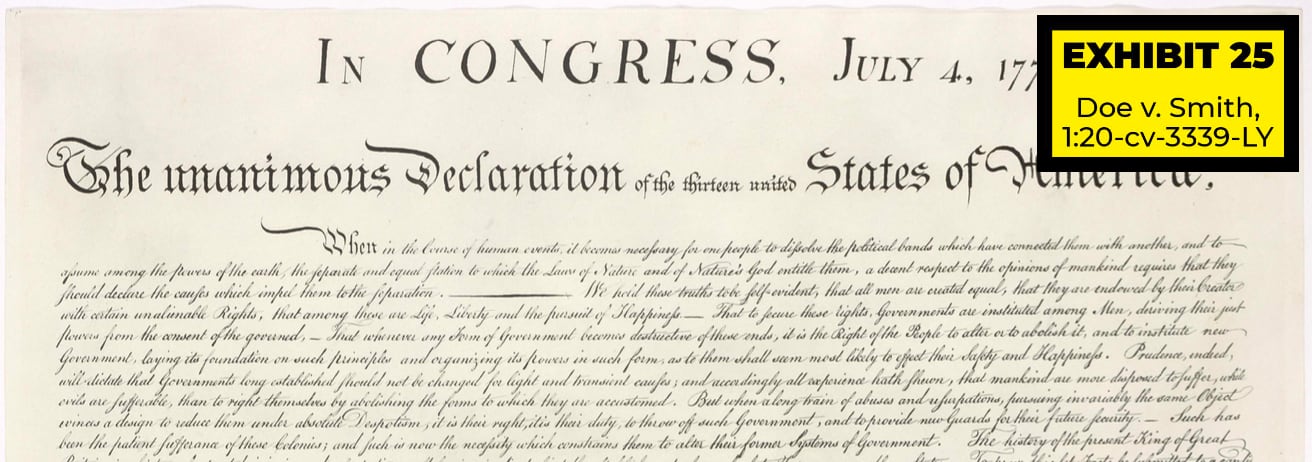 In CONGRESS, July 4, 177
EXHIBIT 25
Doe v. Smith,
1:20-cv-3339-LY
The unanimous Declaration of the thirteen united States of America.
When in the Course of human events, it becomes necessary for one people to dissolve the political bands which have connected them with another, and to
assume among the powers of the earth, the separate and equal station to which the Laws of Nature and of Nature's God entitle them, a decent respect to the opinions of mankind requires that they
should declare the causes which impel them to the separation. ——— We hold these truths to be self-evident, that all men are created equal, that they are endowed by their Creator
with certain unalienable Rights, that among these are Life, Liberty and the pursuit of Happiness.— That to secure these rights, Governments are instituted among Men, deriving their just
powers from the consent of the governed, — That whenever any Form of Government becomes destructive of these ends, it is the Right of the People to alter or to abolish it, and to institute new
Government, laying its foundation on such principles and organizing its powers in such form, as to them shall seem most likely to effect their Safety and Happiness. Prudence, indeed,
will dictate that Governments long established should not be changed for light and transient causes; and accordingly all experience hath shewn, that mankind are more disposed to suffer, while
evils are sufferable, than to right themselves by abolishing the forms to which they are accustomed. But when a long train of abuses and usurpations, pursuing invariably the same Object
evinces a design to reduce them under absolute Despotism, it is their right, it is their duty, to throw off such Government, and to provide new Guards for their future security.— Such has
been the patient sufferance of these Colonies; and such is now the necessity which constrains them to alter their former Systems of Government. The history of the present King of Great